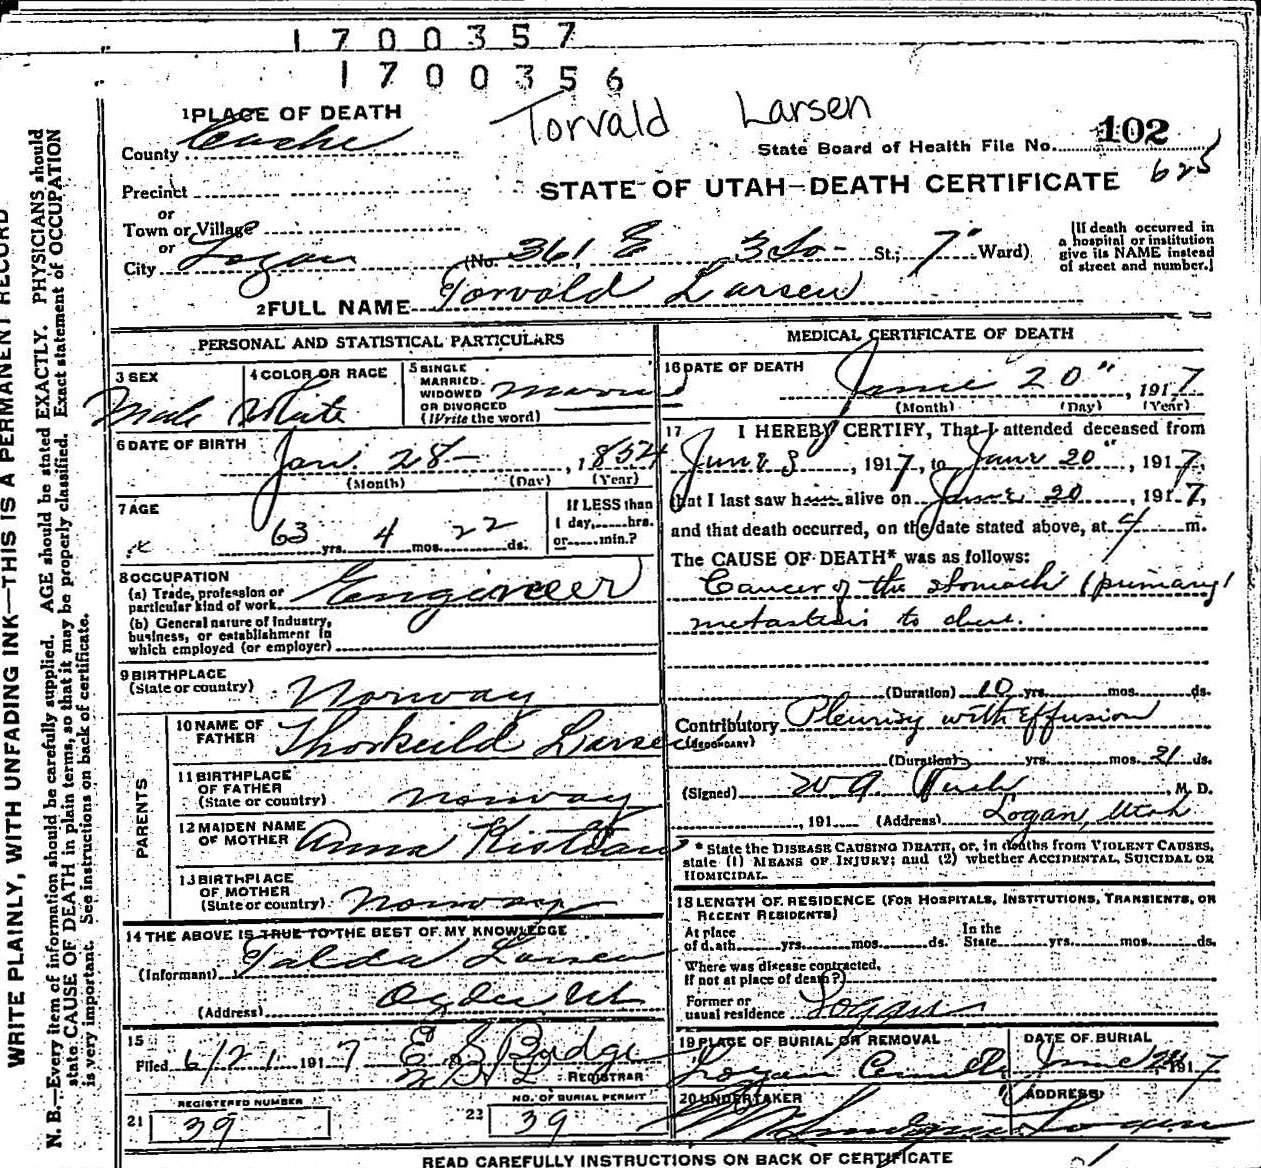 1700357
1700356
Torvald Larsen
1 PLACE OF DEATH
County Cache
State Board of Health File No. 102
625
Precinct
STATE OF UTAH—DEATH CERTIFICATE
or
Town or Village
or
City Logan (No. 361 E 3 So- St.; 7" Ward)
[If death occurred in
a hospital or institution
give its NAME instead
of street and number.]
2 FULL NAME Torvald Larsen
PERSONAL AND STATISTICAL PARTICULARS
3 SEX
Male
4 COLOR OR RACE
White
5 SINGLE
MARRIED
WIDOWED
OR DIVORCED
(Write the word)
Married
6 DATE OF BIRTH
Jan. 28- , 1854
(Month) (Day) (Year)
7 AGE
63 yrs. 4 mos. 22 ds.
If LESS than
1 day,......hrs.
or......min.?
8 OCCUPATION
(a) Trade, profession or
particular kind of work
Engineer
(b) General nature of industry,
business, or establishment in
which employed (or employer)
9 BIRTHPLACE
(State or country)
Norway
PARENTS
10 NAME OF
FATHER
Thorkeild Larsen
11 BIRTHPLACE
OF FATHER
(State or country)
Norway
12 MAIDEN NAME
OF MOTHER
Anna
13 BIRTHPLACE
OF MOTHER
(State or country)
Norway
14 THE ABOVE IS TRUE TO THE BEST OF MY KNOWLEDGE
(Informant) Larsen
(Address) Ogden Ut
15
Filed 6/21 1917 E S Budge
REGISTRAR
REGISTERED NUMBER
21 39
NO. OF BURIAL PERMIT
22 39
MEDICAL CERTIFICATE OF DEATH
16 DATE OF DEATH
June 20" , 1917
(Month) (Day) (Year)
17 I HEREBY CERTIFY, That I attended deceased from
June 3 , 1917, to June 20" , 1917,
that I last saw h alive on June 20 , 1917,
and that death occurred, on the date stated above, at 4 m.
The CAUSE OF DEATH* was as follows:
Cancer of the stomach (primary)
metastasis to
(Duration) 10 yrs. mos. ds.
Contributory Pleurisy with Effusion
(SECONDARY)
(Duration) yrs. mos. 21 ds.
(Signed) W. A. , M. D.
, 191 (Address) Logan, Utah
* State the DISEASE CAUSING DEATH, or, in deaths from VIOLENT CAUSES,
state (1) MEANS OF INJURY; and (2) whether ACCIDENTAL, SUICIDAL OR
HOMICIDAL.
18 LENGTH OF RESIDENCE (FOR HOSPITALS, INSTITUTIONS, TRANSIENTS, OR
RECENT RESIDENTS)
At place In the
of death yrs. mos. ds. State yrs. mos. ds.
Where was disease contracted,
If not at place of death?
Former or
usual residence Logan
19 PLACE OF BURIAL OR REMOVAL
Logan
DATE OF BURIAL
June 1917
20 UNDERTAKER
ADDRESS
Logan
READ CAREFULLY INSTRUCTIONS ON BACK OF CERTIFICATE
WRITE PLAINLY, WITH UNFADING INK—THIS IS A PERMANENT RECORD
N. B.—Every item of information should be carefully supplied. AGE should be stated EXACTLY. PHYSICIANS should
state CAUSE OF DEATH in plain terms, so that it may be properly classified. Exact statement of OCCUPATION
is very important. See instructions on back of certificate.